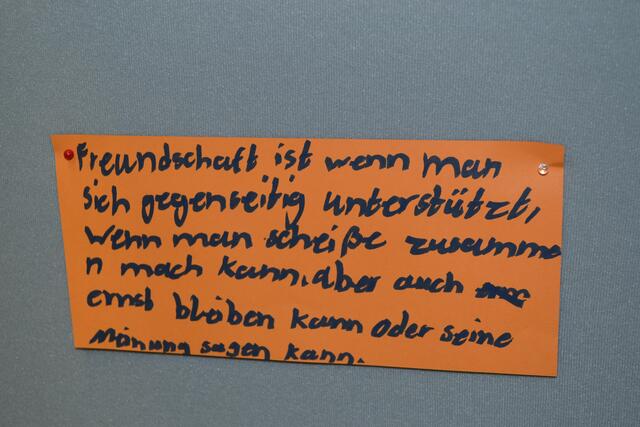 Freundschaft ist wenn man
sich gegenseitig unterstützt,
wenn man scheiße zusamme
n mach kann, aber auch
ernst bleiben kann oder seine
Meinung sagen kann.